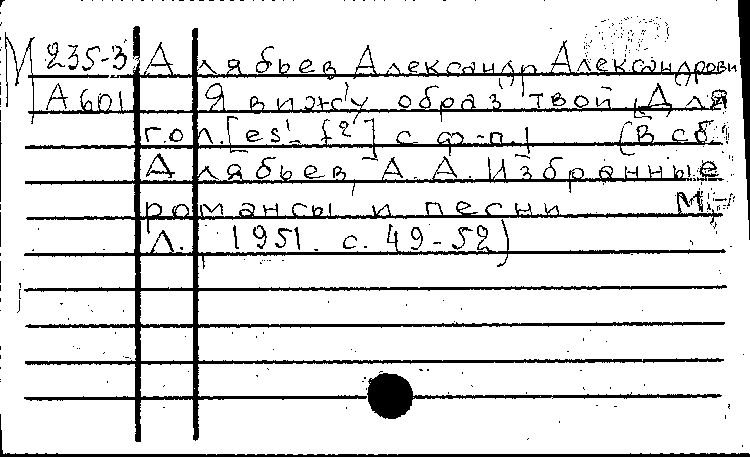 М 235-3 Алябьев Александр Александрови
А601 Я вижу образ твой. Для
гол. [es¹- f²] с ф.-п.] (В сб.
Алябьев, А. А. Избранные
романсы и песни М.-
Л., 1951. с. 49-52)